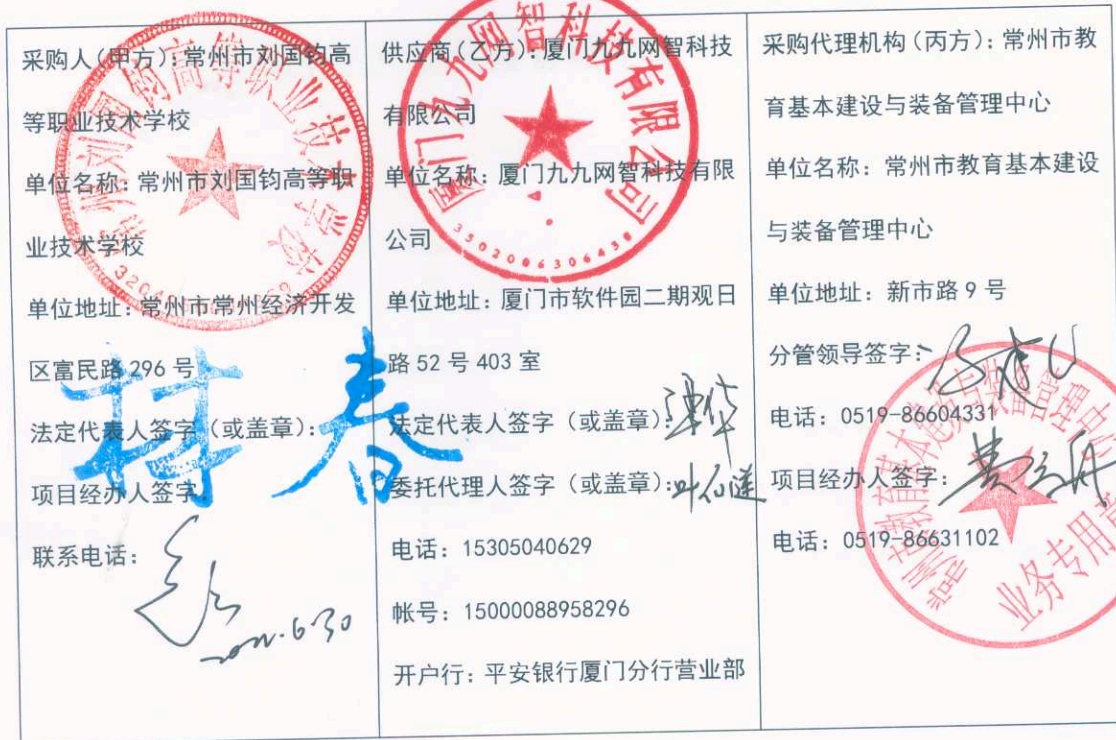 采购人(甲方):常州市刘国钧高
等职业技术学校
单位名称:常州市刘国钧高等职
业技术学校
单位地址:常州市常州经济开发
区富民路 296 号
法定代表人签字(或盖章):
项目经办人签字:
联系电话:
林春
供应商(乙方):厦门九九网智科技
有限公司
单位名称:厦门九九网智科技有限
公司
单位地址:厦门市软件园二期观日
路 52 号 403 室
法定代表人签字(或盖章):
委托代理人签字(或盖章):
电话:15305040629
帐号:15000088958296
开户行:平安银行厦门分行营业部
厦门九九网智科技有限公司
采购代理机构(丙方):常州市教
育基本建设与装备管理中心
单位名称:常州市教育基本建设
与装备管理中心
单位地址:新市路 9 号
分管领导签字:
电话:0519-86604331
项目经办人签字:
电话:0519-86631102
常州市教育基本建设与装备管理中心
业务专用章